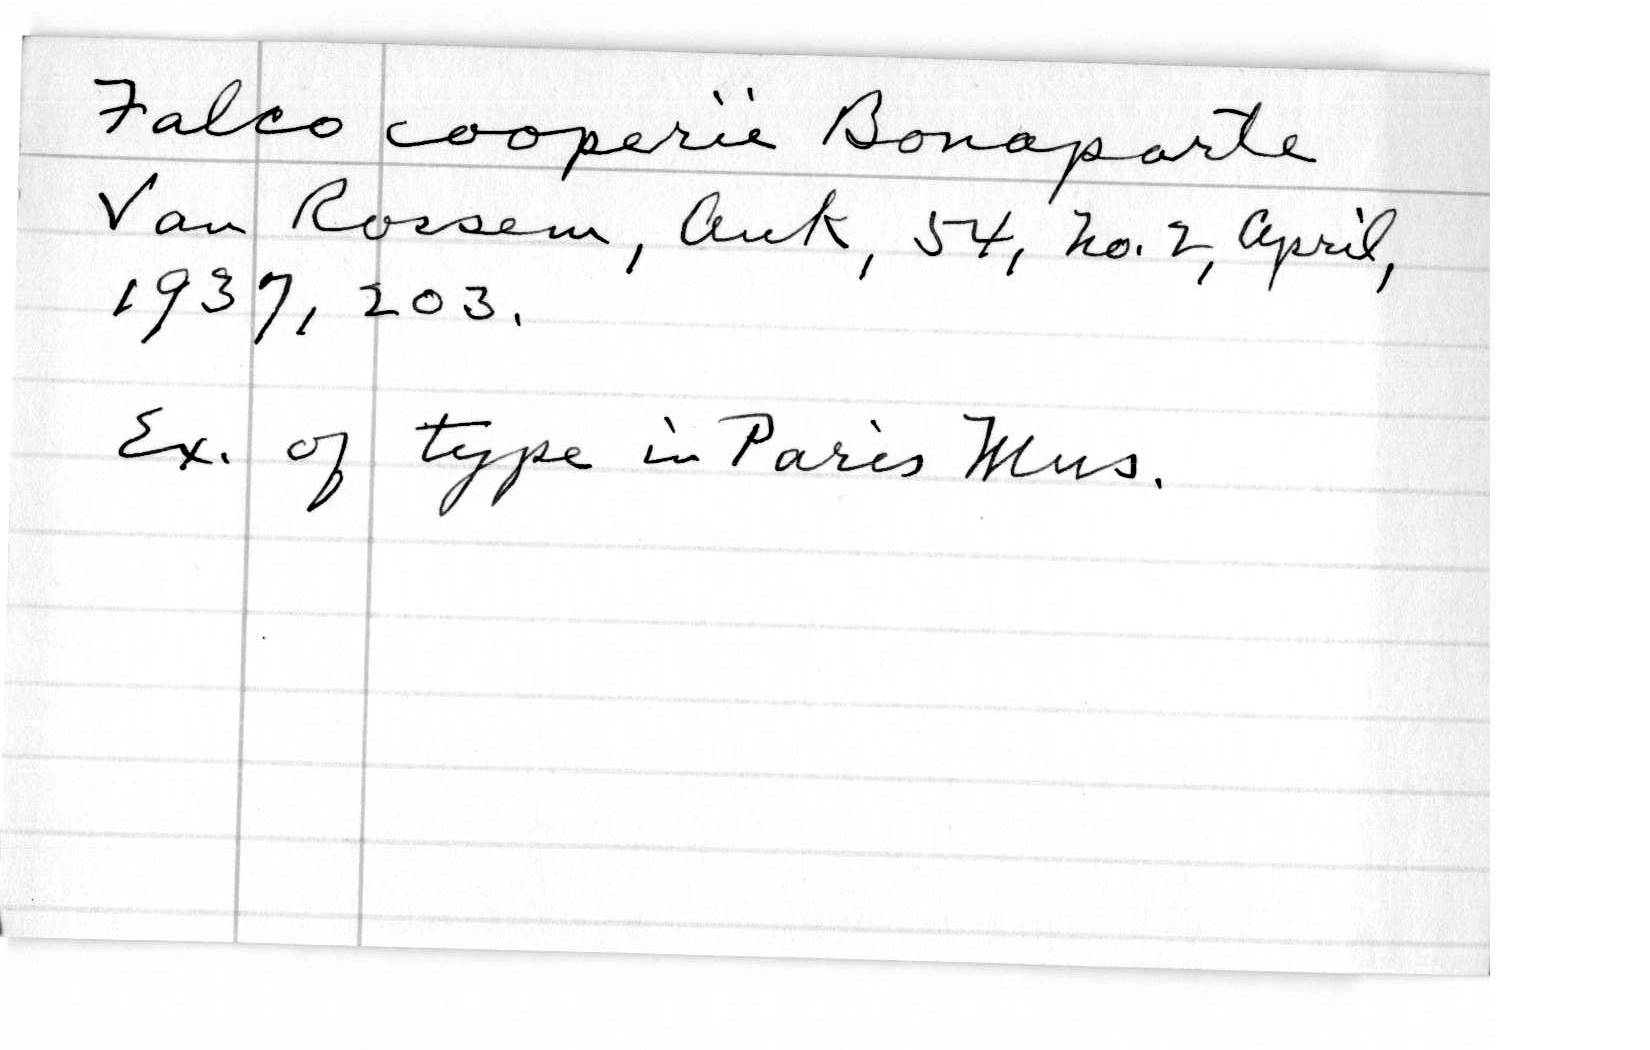 Falco cooperii Bonaparte
Van Rossem, Auk, 54, no. 2, April,
1937, 203.
Ex. of type in Paris Mus.